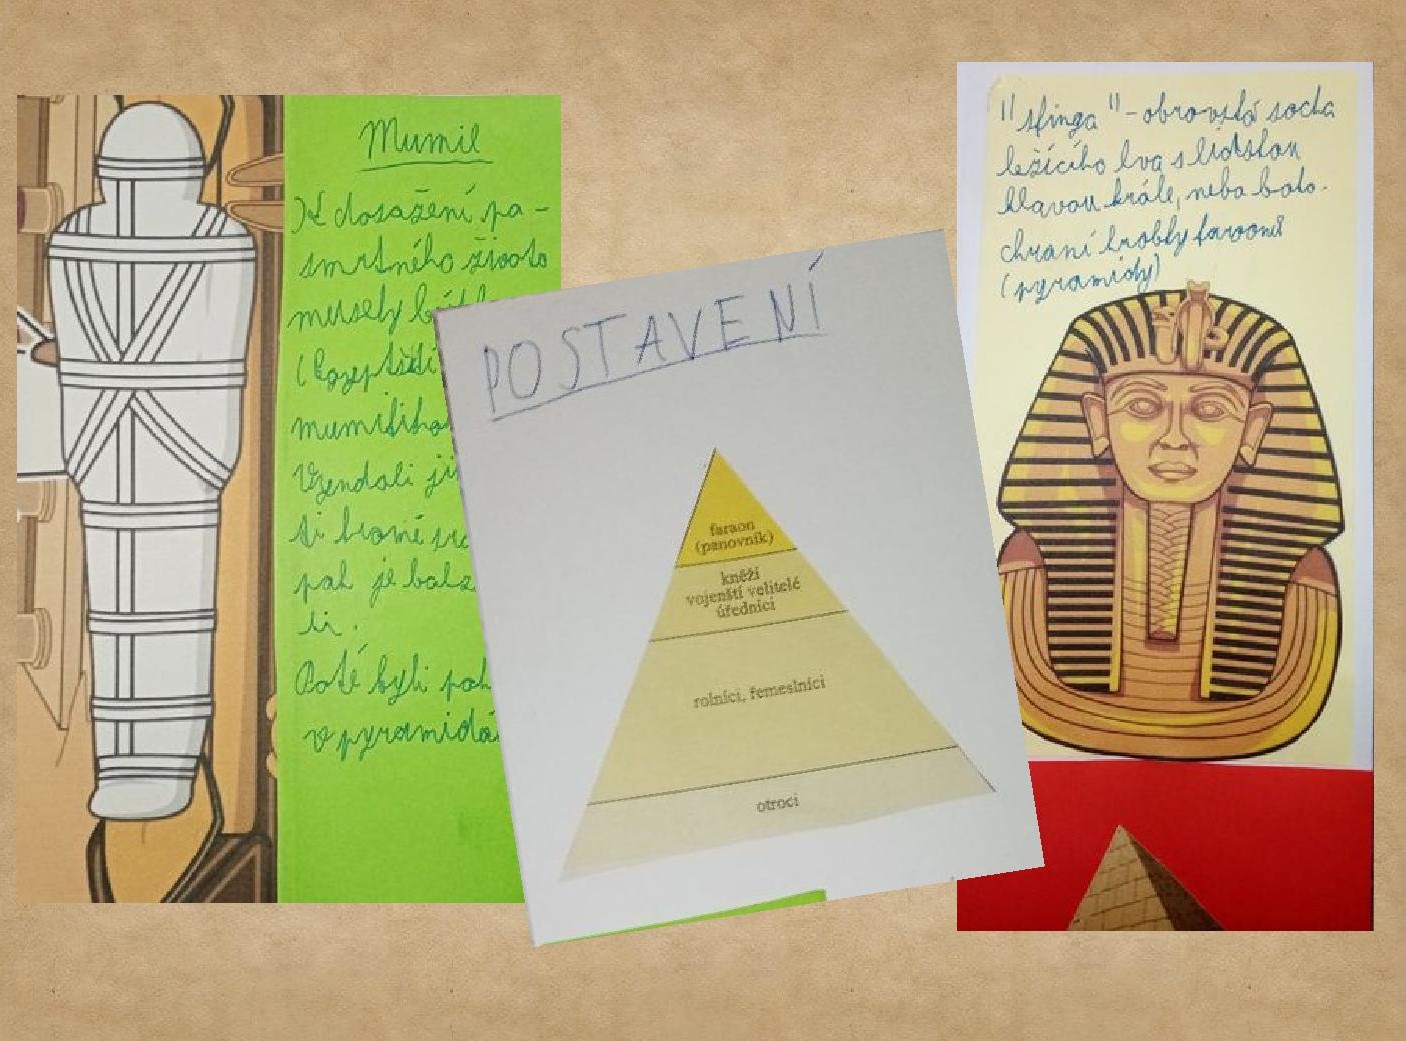 Mumie
K dosažení po-
smrtného života
musely být
(Egypťští
mumifiko
Vyndali ji
ti kromě src
pak je balz
li.
Poté byli poh
v pyramidá
POSTAVENÍ
faraon
(panovník)
kněží
vojenští velitelé
úředníci
rolníci, řemeslníci
otroci
"sfinga" - obrovská socha
ležícího lva s lidskou
hlavou krále, nebo boha.
chraní hrobky faraonů
(pyramidy)